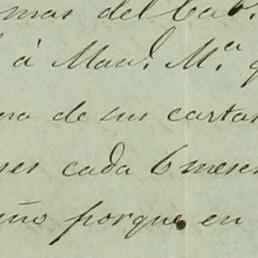 mas del Cab.
á Man.l M.a q
na de sus cartas
ses cada 6 meses
año porque en